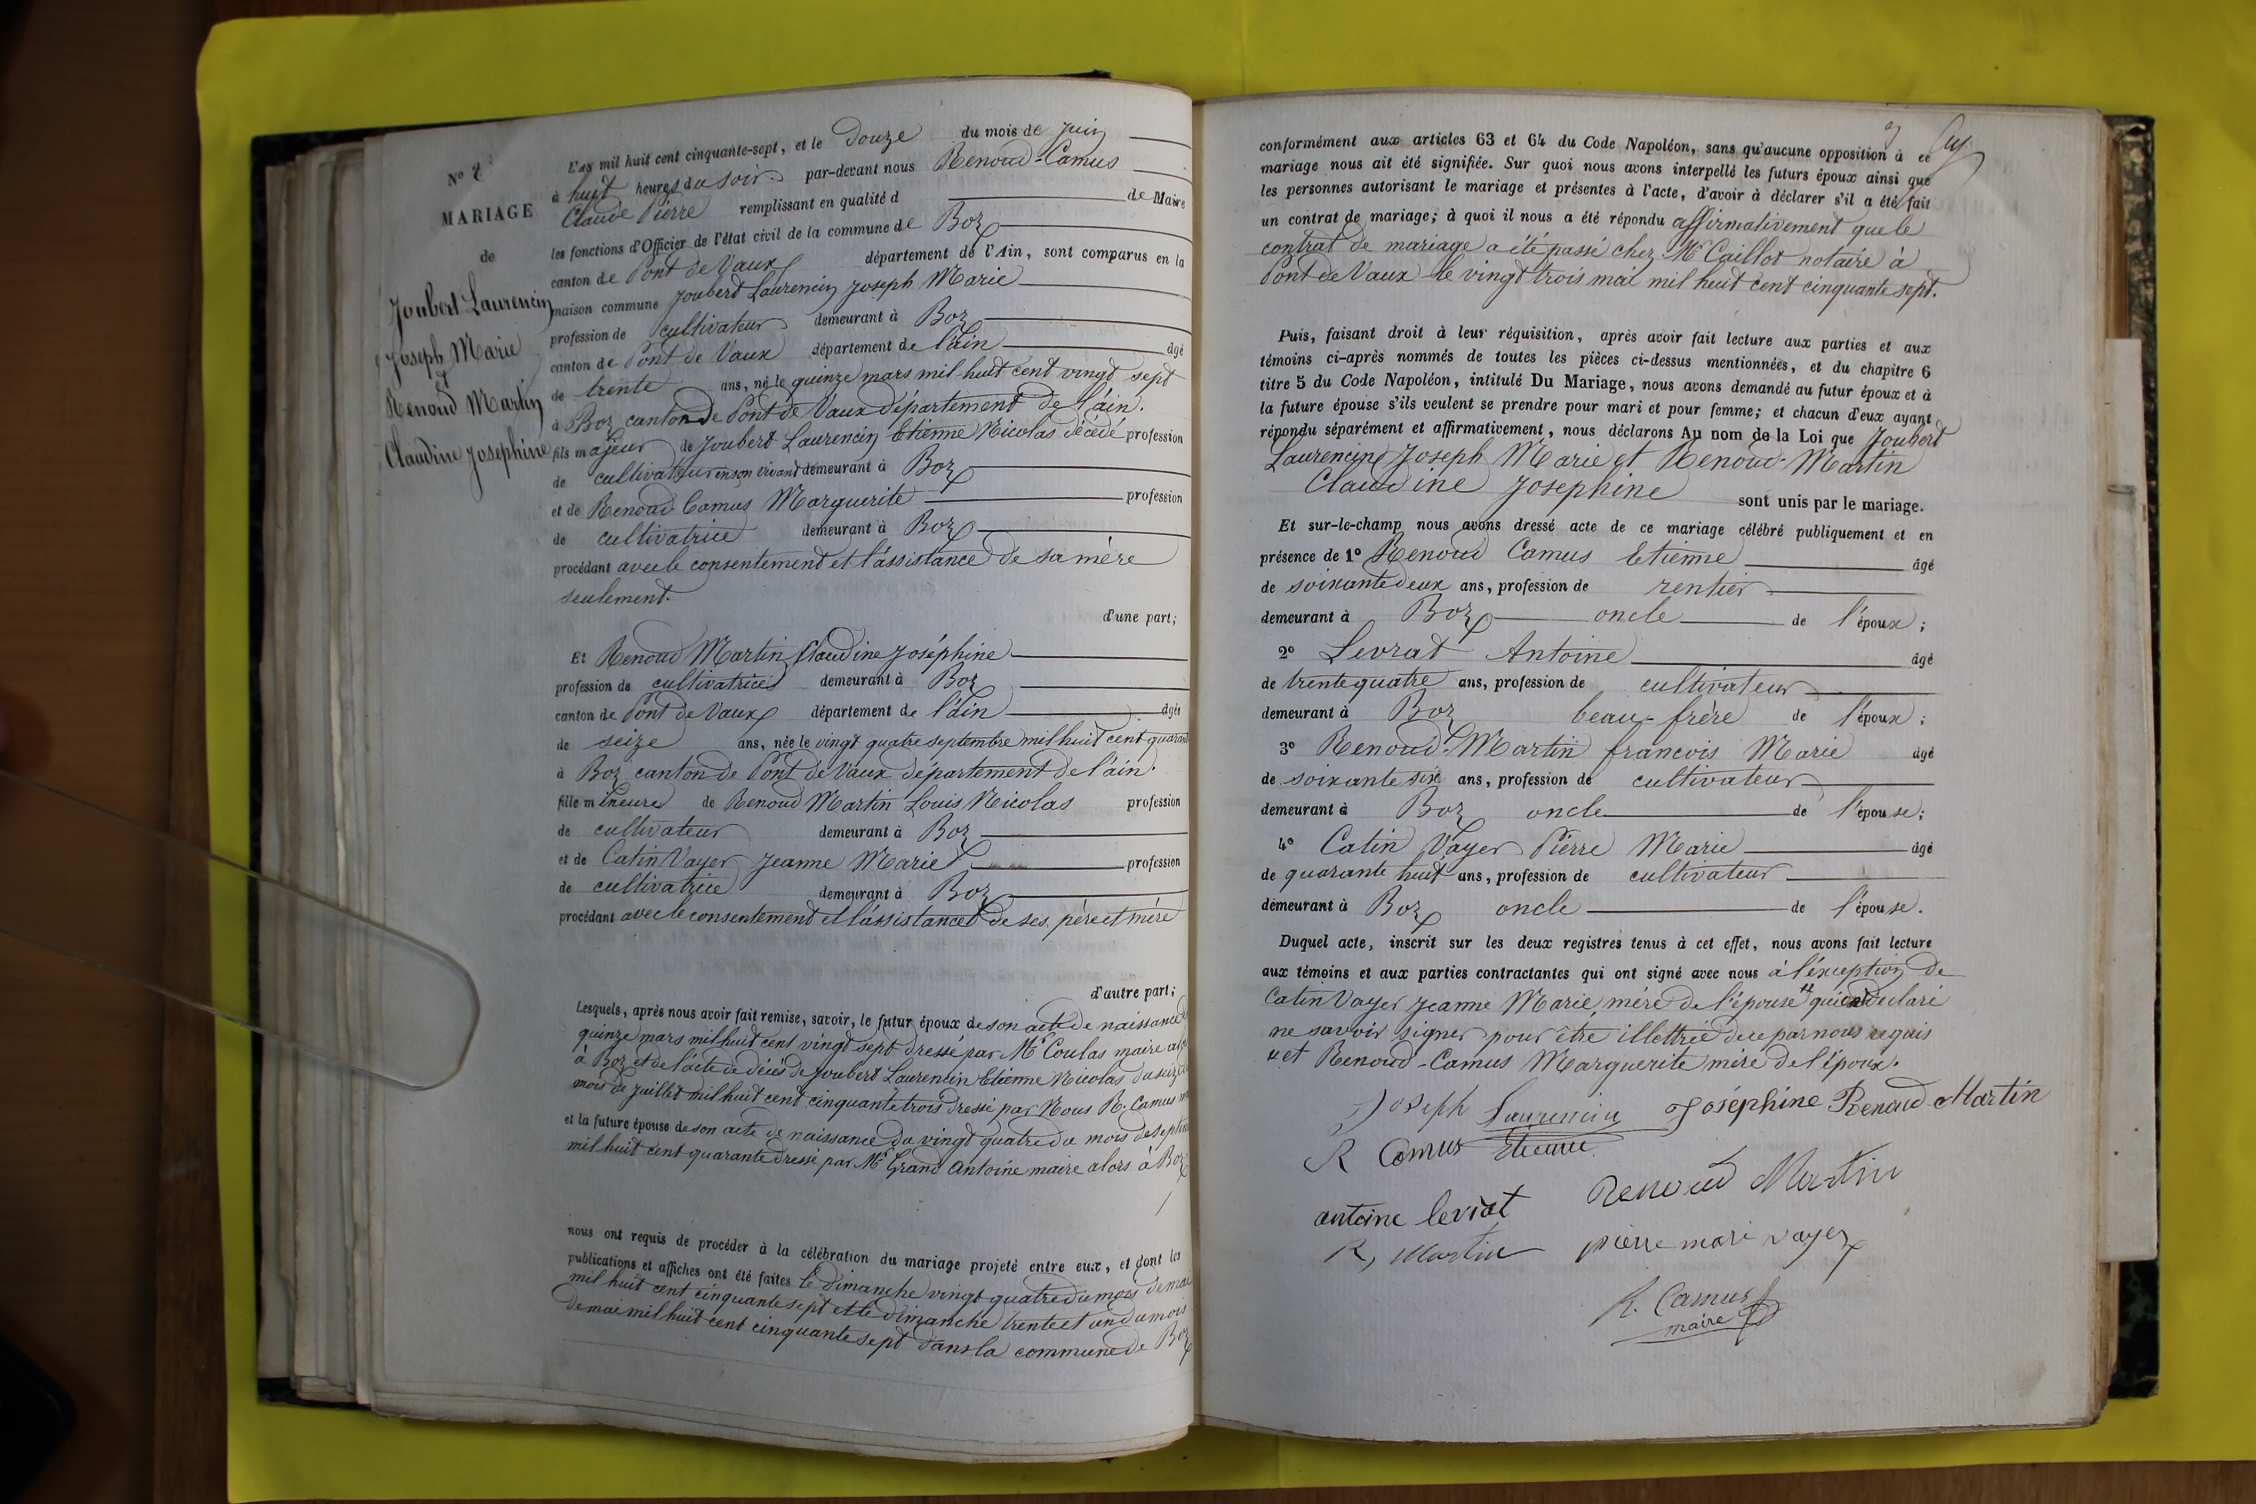 N° 8
MARIAGE
de
Joubert Laurencin
Joseph Marie
et
Renoud Martin
Claudine Josephine
L'an mil huit cent cinquante-sept, et le Douze du mois de Juin
à huit heures du soir par-devant nous Renoud-Camus
Claude Pierre remplissant en qualité d de Maire
les fonctions d'Officier de l'état civil de la commune de Boz
canton de Pont de Vaux département de l'Ain, sont comparus en la
maison commune Joubert Laurencin Joseph Marie
profession de cultivateur demeurant à Boz
canton de Pont de Vaux département de l'ain âgé
de trente ans, né le quinze mars mil huit cent vingt sept
à Boz canton de Pont de Vaux département de l'ain.
fils majeur de Joubert Laurencin Etienne Nicolas décédé profession
de cultivateur en son vivant demeurant à Boz
et de Renoud Camus Marguerite profession
de cultivatrice demeurant à Boz
procédant avec le consentement et l'assistance de sa mère
seulement.
d'une part;
Et Renoud Martin Claudine Joséphine
profession de cultivatrice demeurant à Boz
canton de Pont de Vaux département de l'ain âgée
de seize ans, née le vingt quatre septembre mil huit cent quarante
à Boz canton de Pont de Vaux département de l'ain.
fille mineure de Renoud Martin Louis Nicolas profession
de cultivateur demeurant à Boz
et de Catin Vayer Jeanne Marie profession
de cultivatrice demeurant à Boz
procédant avec le consentement et l'assistance de ses père et mère
d'autre part;
Lesquels, après nous avoir fait remise, savoir, le futur époux de son acte de naissance du
quinze mars mil huit cent vingt sept dressé par Mr Coulas maire alors
à Boz et de l'acte de décès de Joubert Laurencin Etienne Nicolas du seize du
mois de juillet mil huit cent cinquante trois dressé par Nous R. Camus
et la future épouse de son acte de naissance du vingt quatre du mois de septembre
mil huit cent quarante dressé par Mr Grand Antoine maire alors à Boz
nous ont requis de procéder à la célébration du mariage projeté entre eux, et dont les
publications et affiches ont été faites le Dimanche vingt quatre du mois de mai
mil huit cent cinquante sept et le Dimanche trente et un du mois
de mai mil huit cent cinquante sept dans la commune de Boz
conformément aux articles 63 et 64 du Code Napoléon, sans qu'aucune opposition à ce
mariage nous ait été signifiée. Sur quoi nous avons interpellé les futurs époux ainsi que
les personnes autorisant le mariage et présentes à l'acte, d'avoir à déclarer s'il a été fait
un contrat de mariage; à quoi il nous a été répondu affirmativement que le
contrat de mariage a été passé chez Me Caillot notaire à
Pont de Vaux le vingt trois mai mil huit cent cinquante sept.
Puis, faisant droit à leur réquisition, après avoir fait lecture aux parties et aux
témoins ci-après nommés de toutes les pièces ci-dessus mentionnées, et du chapitre 6
titre 5 du Code Napoléon, intitulé Du Mariage, nous avons demandé au futur époux et à
la future épouse s'ils veulent se prendre pour mari et pour femme; et chacun d'eux ayant
répondu séparément et affirmativement, nous déclarons Au nom de la Loi que Joubert
Laurencin Joseph Marie et Renoud-Martin
Claudine Josephine sont unis par le mariage.
Et sur-le-champ nous avons dressé acte de ce mariage célébré publiquement et en
présence de 1° Renoud Camus Etienne âgé
de soixante deux ans, profession de rentier
demeurant à Boz oncle de l'époux;
2° Levrat Antoine âgé
de trente quatre ans, profession de cultivateur
demeurant à Boz beau-frère de l'époux;
3° Renoud-Martin francois Marie âgé
de soixante six ans, profession de cultivateur
demeurant à Boz oncle de l'épouse;
4° Catin Vayer Pierre Marie âgé
de quarante huit ans, profession de cultivateur
demeurant à Boz oncle de l'épouse.
Duquel acte, inscrit sur les deux registres tenus à cet effet, nous avons fait lecture
aux témoins et aux parties contractantes qui ont signé avec nous à l'éxception de
Catin Vayer Jeanne Marie, mère de l'épouse " qui ont déclaré
ne savoir signer pour être illettrée de ce par nous requis
" et Renoud-Camus Marguerite mère de l'époux.
Joseph Laurencin Joséphine Renoud Martin
R Camus Etienne
Renoud Martin
antoine levrat
R, Martin pierre mari vayer
R. Camus
maire